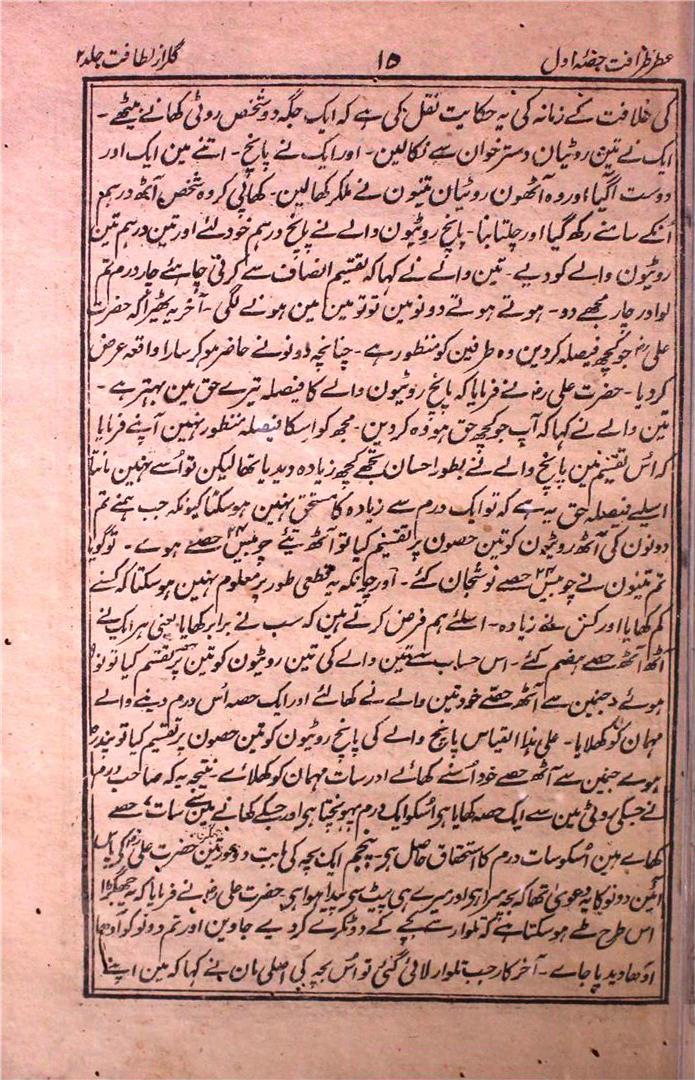 عطر ظرافت حصۂ اول ۱۵ گلزار لطافت جلد ۲
کی خلافت کے زمانہ کی یہ حکایت نقل کی ہے کہ ایک جگہ دو شخص روٹی کھانے بیٹھے۔
ایک نے تین روٹیان دسترخوان سے نکالین۔ اور ایک نے پانچ۔ اتنے مین ایک اور
دوست آگیا اور وہ آٹھون روٹیان تینون نے ملکر کھا لین۔ کھا پی کر وہ شخص آٹھ درہم
اُنکے سامنے رکھ گیا اور چلتا بنا۔ پانچ روٹیون والے نے پانچ درہم خود لئے اور تین درہم تین
روٹیون والے کو دیے۔ تین والے نے کہا کہ تقسیم انصاف سے کرنی چاہئے چار درم تم
لو اور چار مجھے دو۔ ہوتے ہوتے دونو مین تو تو مین مین ہونے لگی۔ آخر یہ ٹھیرا کہ حضرت
علی رض جو کچھ فیصلہ کر دین وہ طرفین کو منظور ہے۔ چنانچہ دونو نے حاضر ہو کر سارا واقعہ عرض
کر دیا۔ حضرت علی رض نے فرمایا کہ پانچ روٹیون والے کا فیصلہ تیرے حق مین بہتر ہے۔
تین والے نے کہا کہ آپ جو کچھ حق ہو وہ کر دین۔ مجھ کو اسکا فیصلہ منظور نہین آپنے فرمایا
کہ اُس تقسیم مین پانچ والے نے بطور احسان تجھے کچھ زیادہ دیدیا تھا لیکن تو اُسے نہین مانتا
اسلیے فیصلہ حق یہ ہے کہ تو ایک درم سے زیادہ کا مستحق نہین ہو سکتا کیونکہ جب ہمنے تم
دونون کی آٹھ روٹیون کو تین حصون پر تقسیم کیا تو آٹھ تیئے چوبیس ۲۴ حصے ہوے۔ تو گویا
تم تینون نے چوبیس ۲۴ حصے نوشجان کئے۔ اور چونکہ یہ قطعی طور پر معلوم نہین ہو سکتا کہ کسنے
کم کھایا اور کس نے زیادہ۔ اسلئے ہم فرض کرتے ہین کہ سب نے برابر کھایا یعنی ہر ایک نے
آٹھ آٹھ حصے ہضم کئے۔ اس حساب سے تین والے کی تین روٹیون کو تین پر تقسیم کیا تو نو
ہوئے جنمین سے آٹھ حصے خود تین والے نے کھائے اور ایک حصہ اُس درم دینے والے
مہمان کو کھلایا۔ علی ہذا القیاس پانچ والے کی پانچ روٹیون کو تین حصون پر تقسیم کیا تو پندرہ
ہوے جنمین سے آٹھ حصے خود اُسنے کھائے اور سات مہمان کو کھلاے۔ نتیجہ یہ کہ صاحب درم
نے جسکی روٹی مین سے ایک حصہ کھایا ہو اُسکو ایک درم پہونچتا ہو اور جسکے کھانے مین سے سات ۷ حصے
کھاے ہین اُسکو سات درم کا استحقاق حاصل ہو۔ پنجم ایک بچہ کی بابت دو عورتین حضرت علی رض کی پاس
آئین دونو کا یہ دعویٰ تھا کہ بچہ میرا ہو اور میرے ہی پیٹ سے پیدا ہوا ہو۔ حضرت علی رض نے فرمایا کہ یہ جھگڑا
اس طرح طے ہو سکتا ہے کہ تلوار سے بچے کے دو ٹکڑے کر دیے جاوین اور تم دونو کو آدھا
آدھا دیدیا جاے۔ آخر کار جب تلوار لائی گئی تو اُس بچہ کی اصلی مان نے کہا کہ مین اپنے